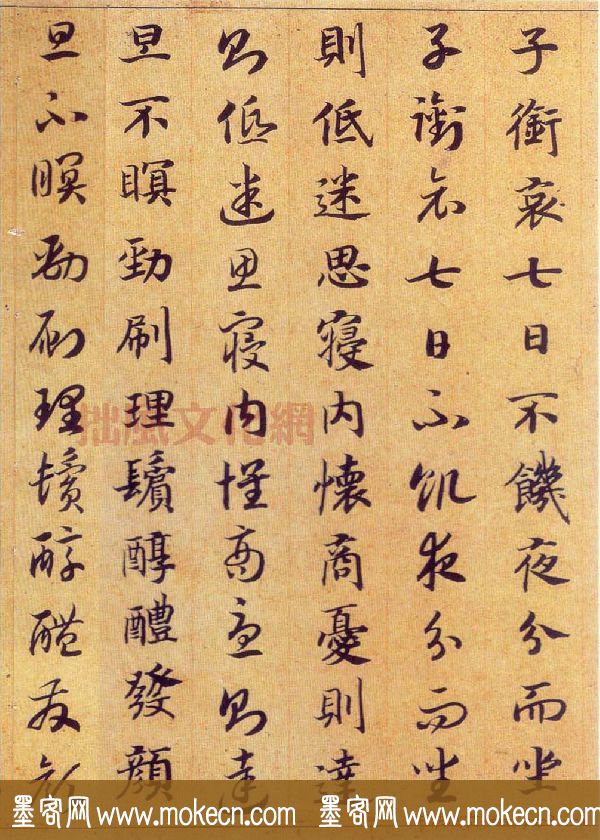 子銜哀七日不饑夜分而坐
子銜哀七日不飢夜分而坐
則低迷思寢内懷商憂則達
則低迷思寢内懷商憂則達
旦不瞑勁刷理鬢醇醴發顏
旦不瞑勁刷理鬢醇醴發顏
拙風文化網
墨客网 www.mokecn.com 墨客网 www.mokecn.com